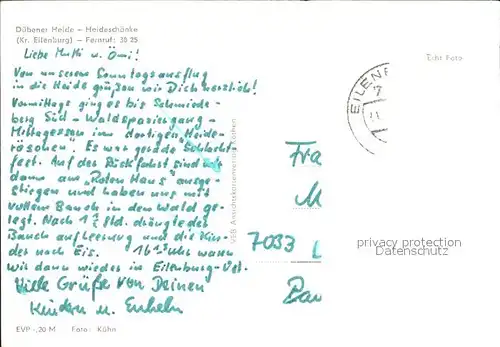 Dübener Heide – Heideschänke
(Kr. Eilenburg) – Fernruf: 38 25
Liebe Mutti u. Omi!
Von unserem Sonntagsausflug
in die Heide grüßen wir Dich herzlich!
Vormittags ging es bis Schmiede-
berg Süd - Waldspaziergang -
Mittagessen im dortigen "Heide-
röschen". Es war gerade Schlacht-
fest. Auf der Rückfahrt sind wir
dann am "Roten Haus" ausge-
stiegen und haben uns mit
vollem Bauch in den Wald ge-
legt. Nach 1½ Std. drängte der
Bauch auf Leerung und die Kin-
der nach Eis. 16 Uhr waren
wir dann wieder in Eilenburg-Ost.
Viele Grüße von Deinen
Kindern u. Enkeln
EVP -,20 M Foto: Kühn
VEB Ansichtskartenversand
Echt Foto
EILENB
7
Fra
M
7033 L
privacy protection
Datenschutz